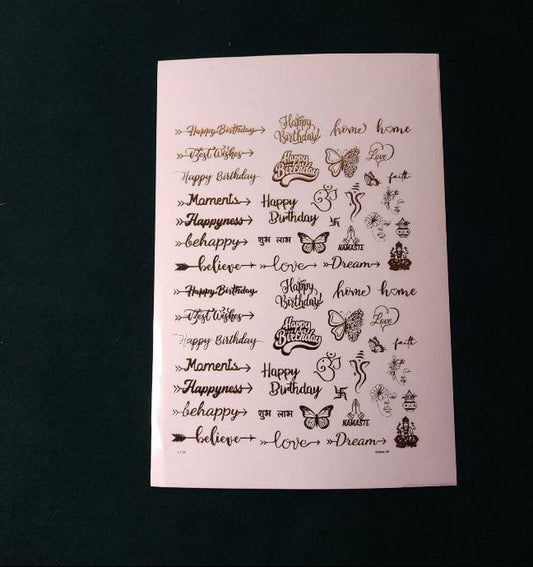 Happy Birthday Happy Birthday! home home
Best Wishes Happy Birthday Love
Happy Birthday faith
Moments Happy Birthday
Happyness
behappy शुभ लाभ NAMASTE
believe love Dream
Happy Birthday Happy Birthday! home home
Best Wishes Happy Birthday Love
Happy Birthday faith
Moments Happy Birthday
Happyness
behappy शुभ लाभ NAMASTE
believe love Dream